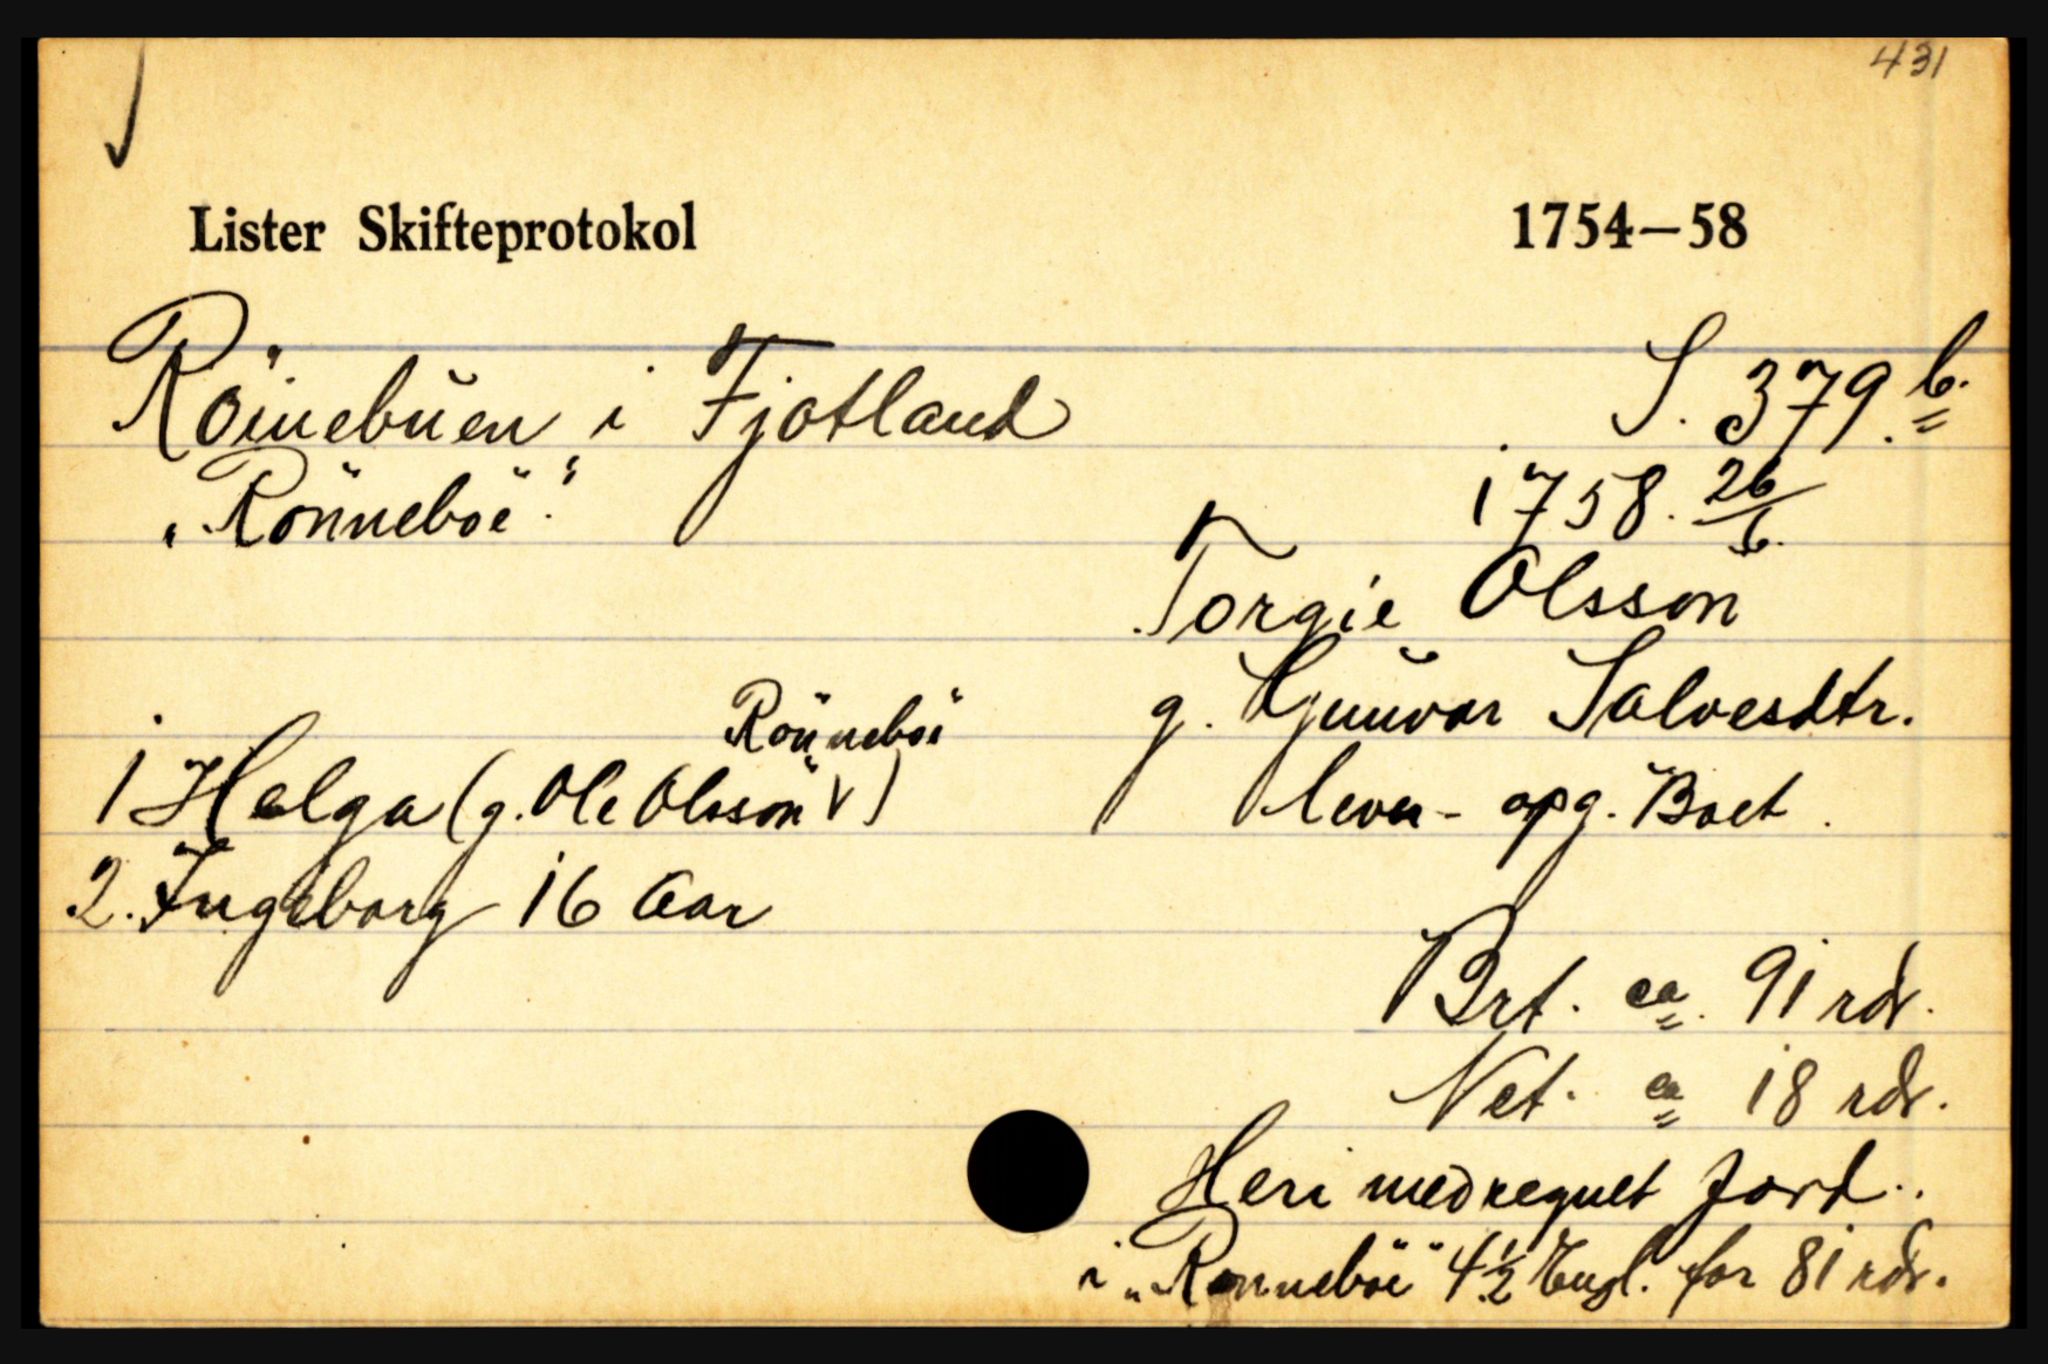 431
Lister Skifteprotokol 1754—58
Röinebuen i Fjotland S. 379.b.
„Rönneböe“. 1758. 26/6.
Torgie Olsson
g. Gunvor Salvesdtr.
lever - opg. Boet.
Rönneböe
1 Helga (g. Ole Olsson V)
2. Ingeborg 16 Aar
Brt. ca. 91 rdr.
Net. ca 18 rdr.
Heri medregnet Jord.
i „Rönneböe“ 4½ Engl. for 81 rdr.